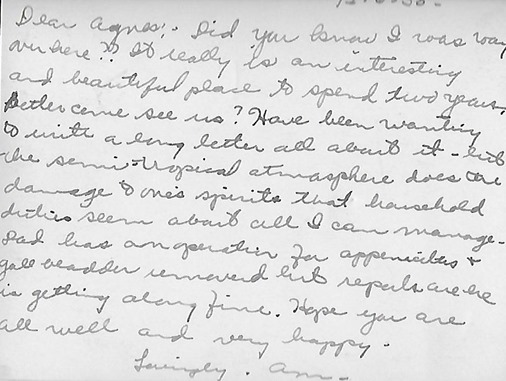 Dear Agnes:- Did you know I was way
over here?? It really is an interesting
and beautiful place to spend two years,
Better come see us? Have been wanting
to write a long letter all about it - but
the semi-tropical atmosphere does the
damage to one's spirits that household
duties seem about all I can manage.
Dad has an operation for appenicitus &
gall bladder removed but reports are he
is getting along fine. Hope you are
all well and very happy.
Lovingly. Ann-